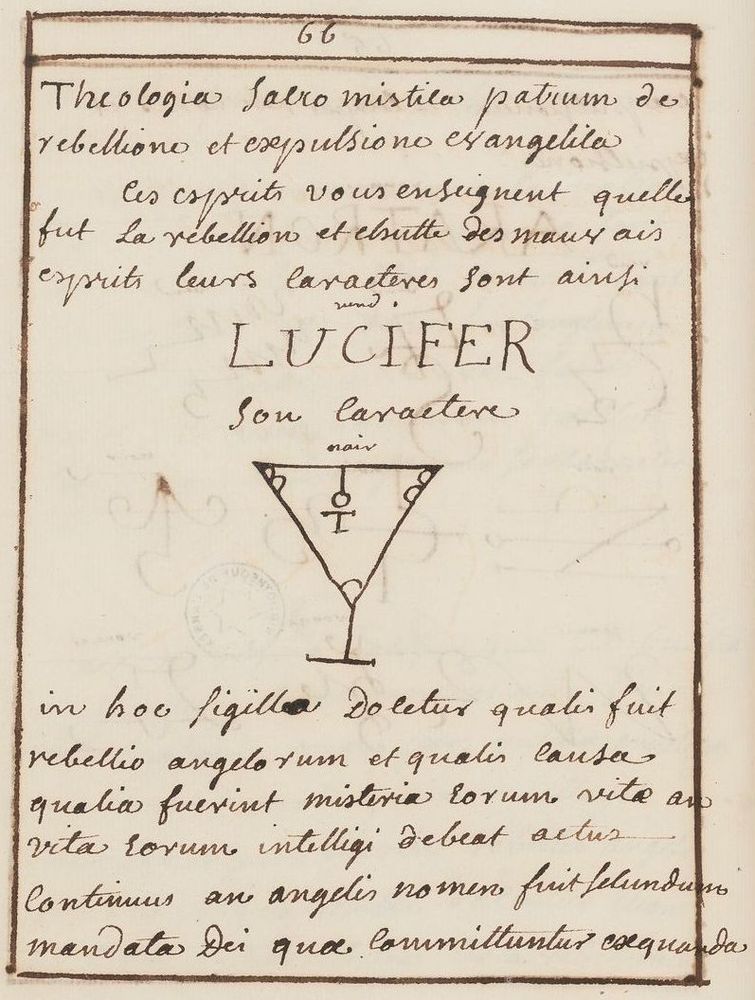 66
Theologia Sacro mistica patrum de
rebellione et expulsione evangelica
Ces esprits vous enseignent quelle
fut La rebellion et chutte des mauvais
esprits leurs caracteres sont ainsi
LUCIFER
Son caractere
noir
T
in hoc sigilla Docetur qualis fuit
rebellio angelorum et qualis causa
qualia fuerint misteria Eorum vitæ an
vita Eorum intelligi debeat actus
continuus an angelis nomen fuit secundum
mandata Dei quæ committuntur exquanda